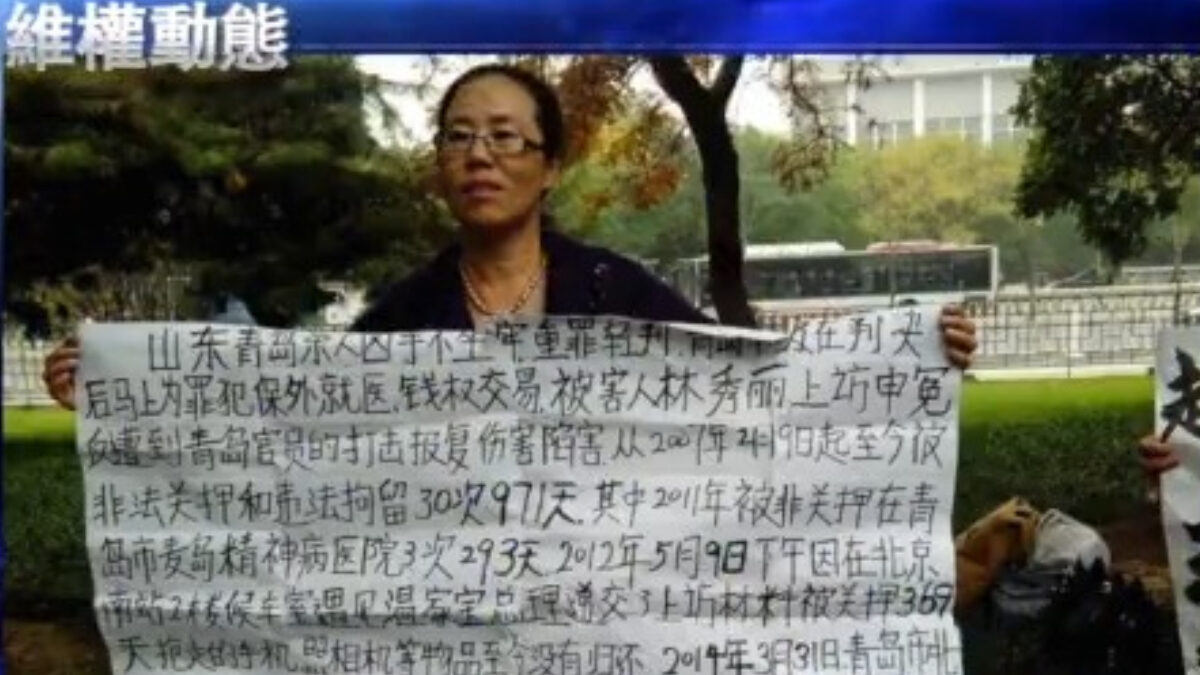 維權動態
山东青岛杀人凶手不坐牢,重罪轻判,青岛 在判决
后马上为罪犯保外就医,钱权交易,被害人林秀丽上访申冤
反遭到青岛官员的打击报复伤害陷害,从2007年2月9日起至今被
非法关押和违法拘留30次971天,其中2011年被非关押在青
岛市麦岛精神病医院3次293天,2012年5月9日下午因在北京
南站2 候车室遇见温家宝总理递交了上访材料被关押369
天抢走的手机,照相机等物品至今没有归还,2014年3月31日,青岛市北